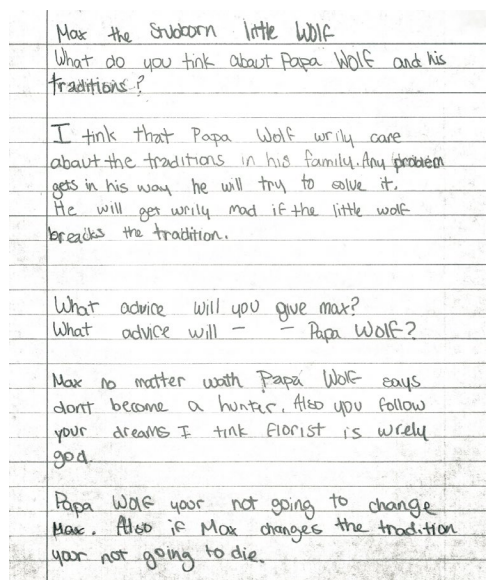 Max the Stubborn little Wolf
What do you tink about Papa Wolf and his
traditions?
I tink that Papa Wolf wrily care
abaut the traditions in his family. Any problem
gets in his way he will try to solve it.
He will get wrily mad if the little wolf
breacks the tradition.
What advice will you give max?
What advice will - - Papa Wolf?
Max no matter wath Papa Wolf says
dont become a hunter. Also you follow
your dreams I tink florist is wrely
god.
Papa Wolf your not going to change
Max. Also if Max changes the tradition
your not going to die.